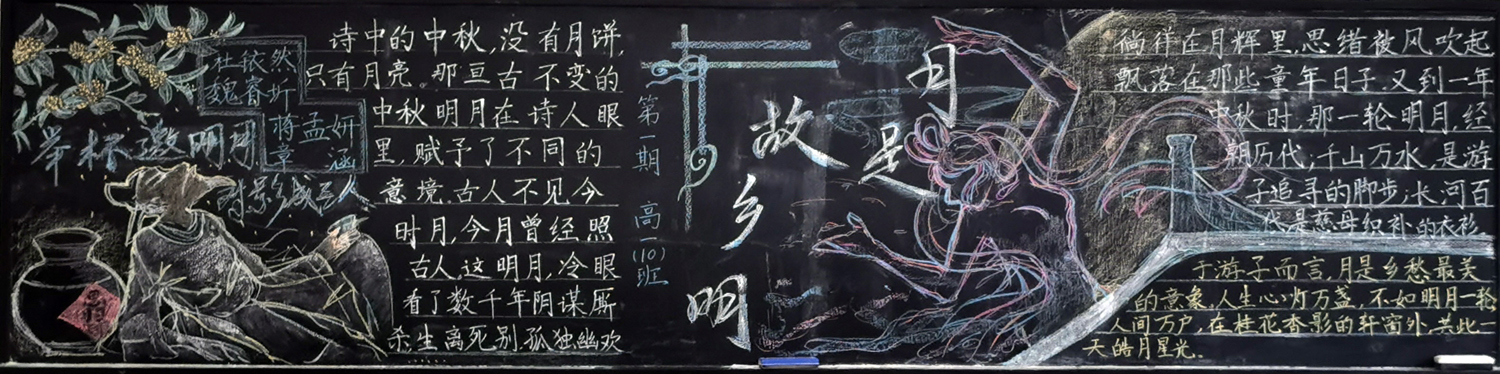 杜依然
魏睿圻
蒋孟妍
章涵
举杯邀明月
对影成三人
诗中的中秋,没有月饼,
只有月亮。那亘古不变的
中秋明月在诗人眼
里,赋予了不同的
意境.古人不见今
时月,今月曾经照
古人.这明月,冷眼
看了数千年阴谋厮
杀,生离死别.孤独幽欢
第一期 高一(10)班
月是
故乡明
徜徉在月辉里,思绪被风吹起
飘落在那些童年日子.又到一年
中秋时,那一轮明月,经
朝历代;千山万水,是游
子追寻的脚步;水,河百
代是慈母织补的衣衫.
于游子而言,月是乡愁最美
的意象,人生心灯万盏,不如明月一轮
人间万户,在桂花香影的轩窗外,共此一
天皓月星光.